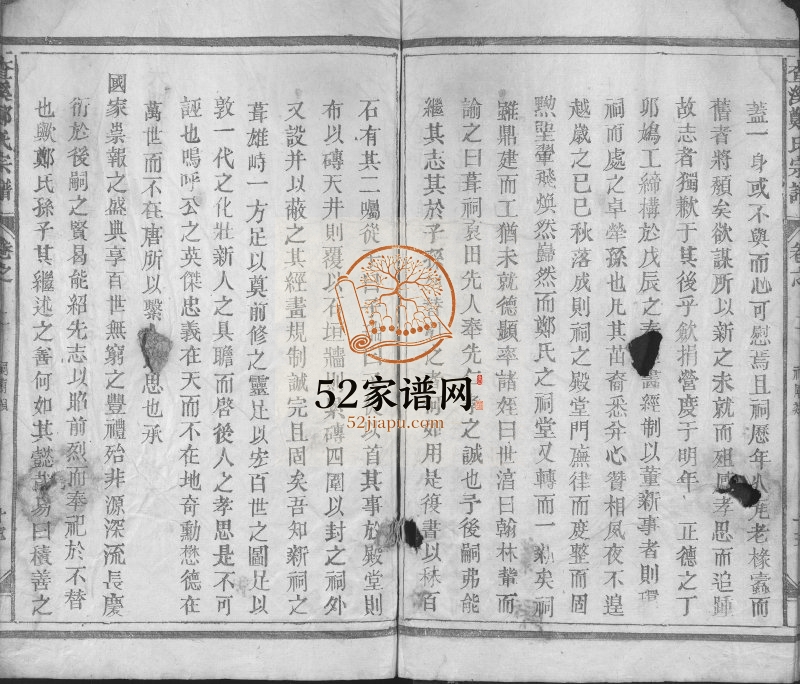 蓋一身或不與而心可慰焉且祠歷年
老椽蠹而
舊者將頹矣欲謀所以新之未就而殂
孝思而追踵
故志者獨歉于其後乎歛捐營慶于明年
正德之丁
卯鳩工締構於戊辰之
經制以董新事者則
祠而處之卓犖孫也凡其苗裔悉弁心贊相夙夜不遑
越歲之己巳秋落成則祠之殿堂門廡律而慶整而固
黝堊翬飛煥然巋然而鄭氏之祠堂又轉而一新矣祠
雖鼎建而工猶未就德顯率諸姪曰世涫曰翰林輩而
諭之曰葺祠裒田先人奉先
之誠也予後嗣弗能
繼其志其於子
用是復書以秝百
石有其二囑從
以首其事於殿堂則
布以磚天井則覆以石垣牆則
磚四圍以封之祠外
又設并以蔽之其經畫規制誠完且固矣吾知新祠之
葺雄峙一方足以奠前修之靈足以宏百世之圖足以
敦一代之化壯新人之具瞻而啓後人之孝思是不可
誣也嗚呼公之英傑忠義在天而不在地奇勳懋德在
萬世而不在唐所以繫
思也承
國家崇報之盛典享百世無窮之豐禮殆非源深流長慶
衍於後嗣之賢曷能紹先志以貽前烈而奉祀於不替
也歟鄭氏孫子其繼述之善何如其懿
易曰積善之
鄭氏宗譜
卷之
52家谱网
52jiapu.com